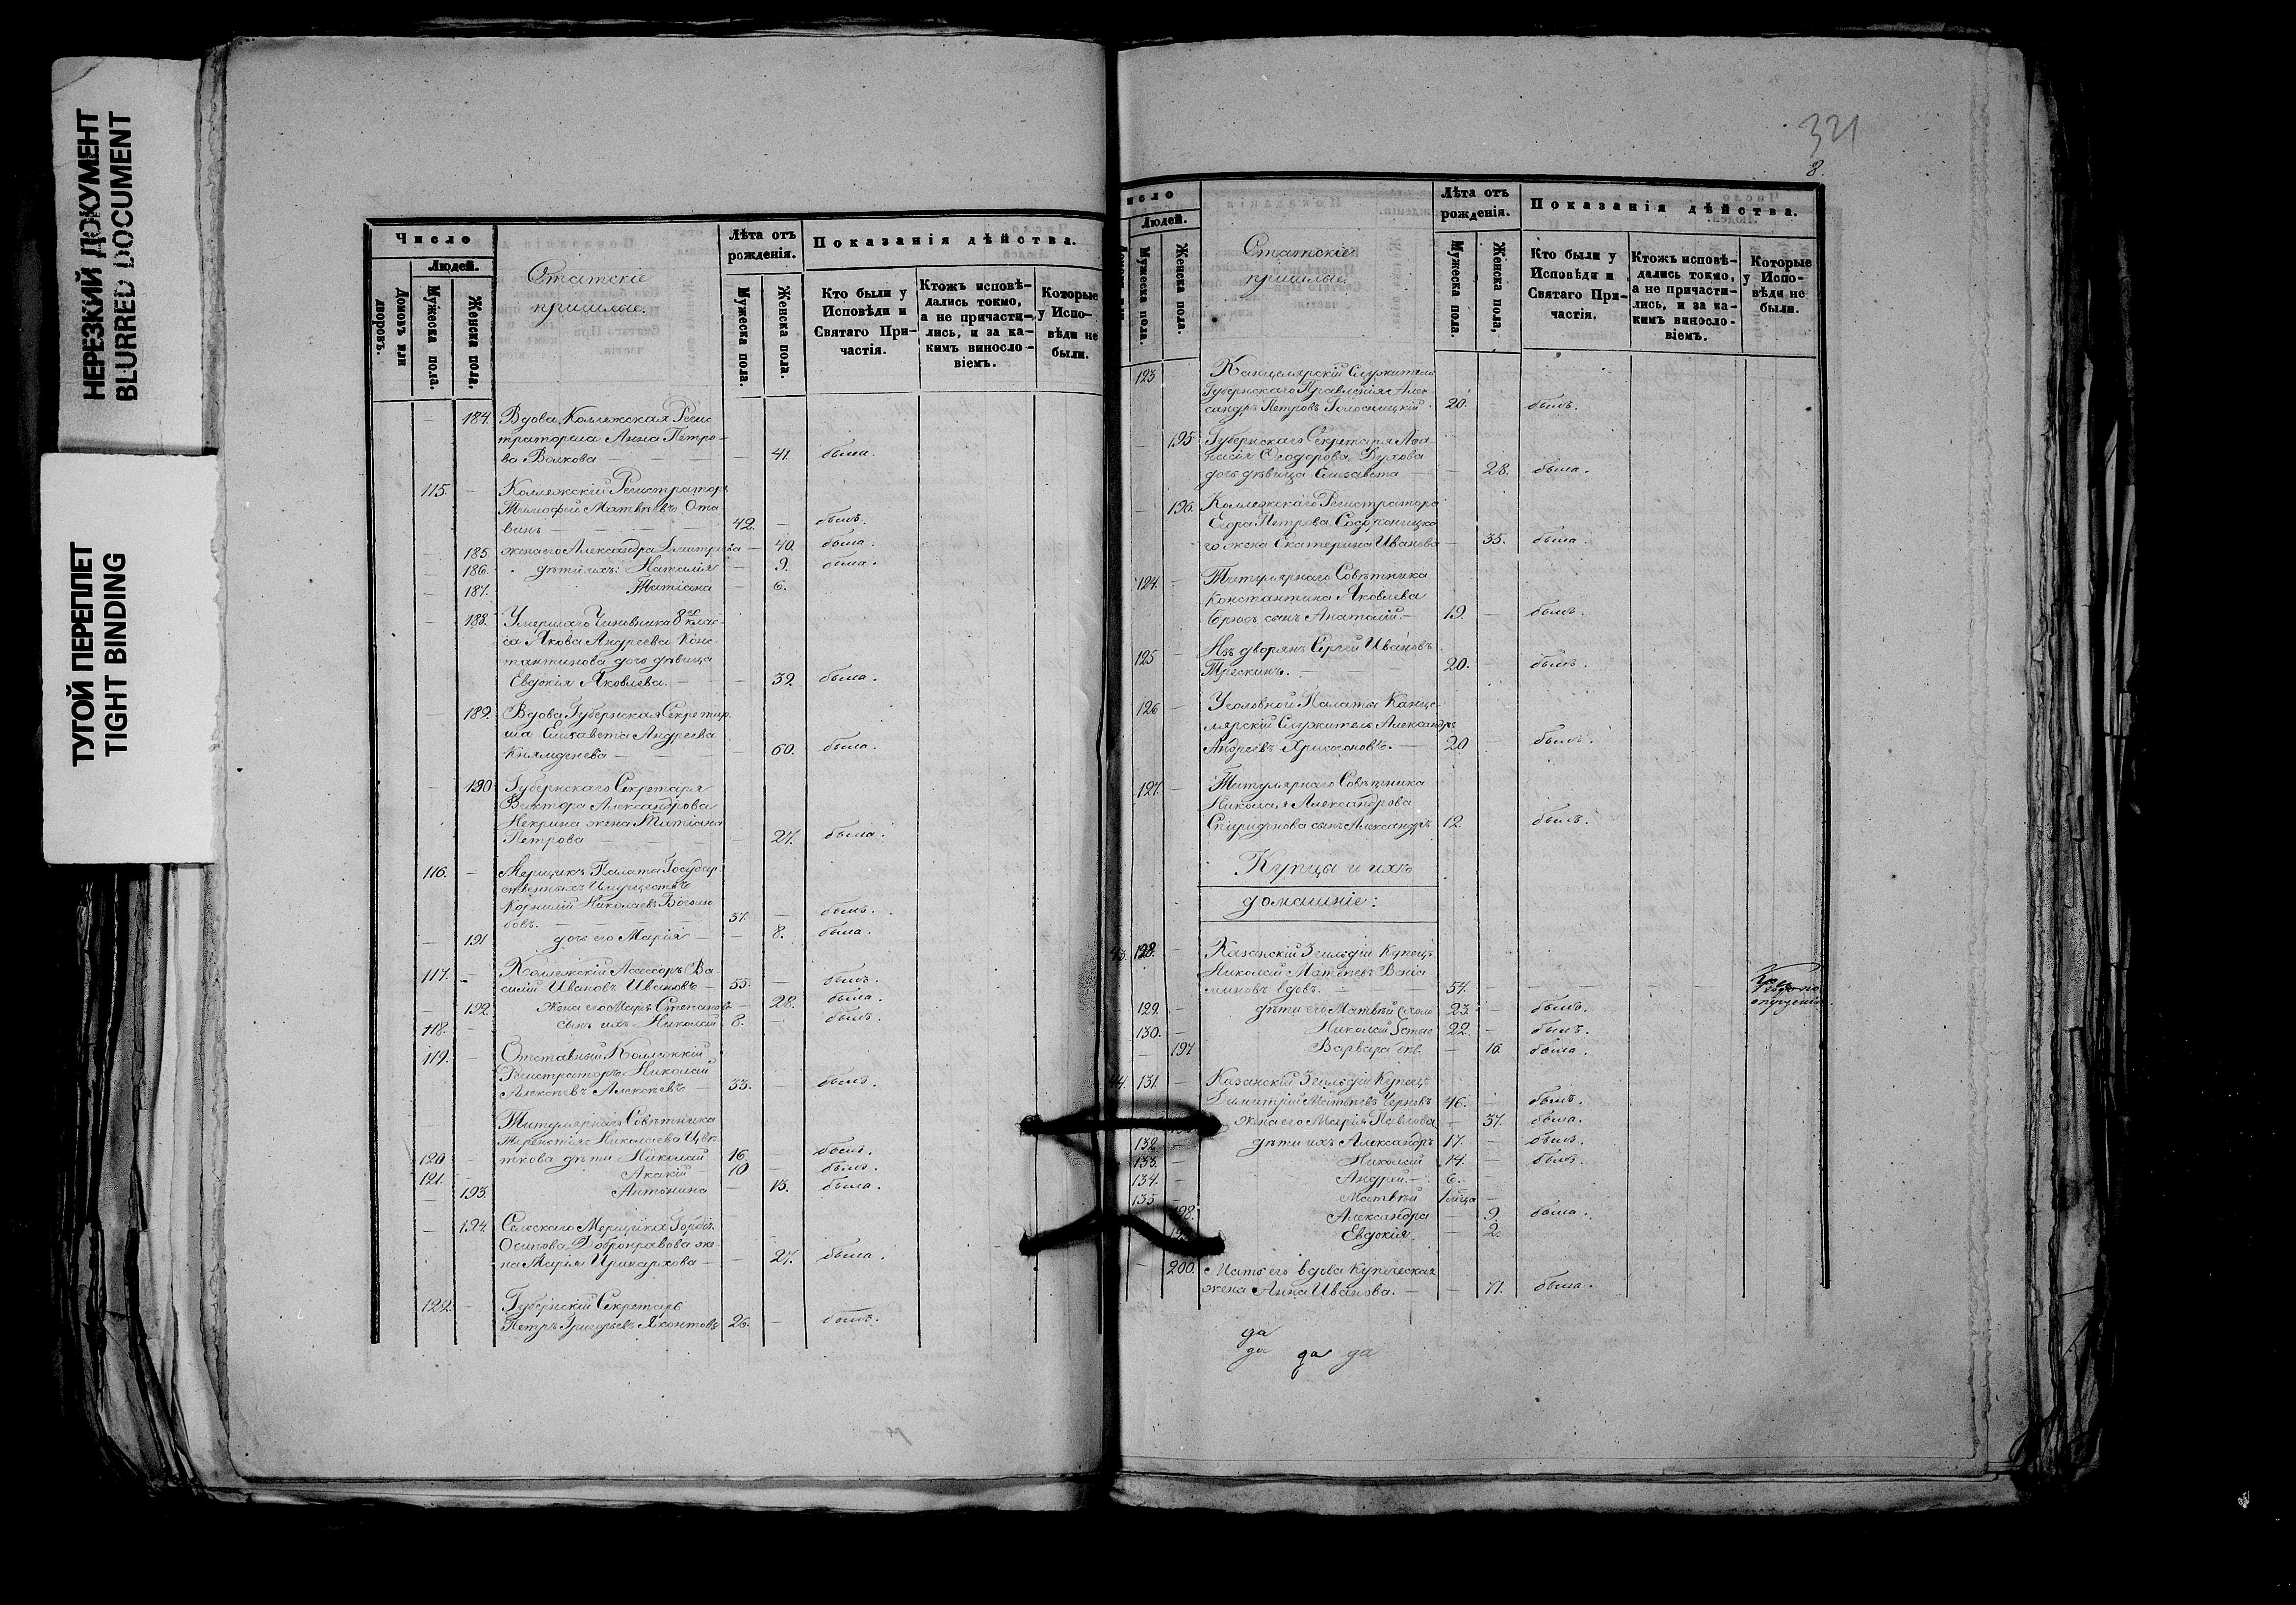 НЕРЕЗКИЙ ДОКУМЕНТ
BLURRED DOCUMENT
ТУГОЙ ПЕРЕПЛЕТ
TIGHT BINDING
Число
Людей.
Домовъ или дворовъ.
Мужеска пола.
Женска пола.
Статскіе
пришлые.
Лѣта отъ рожденія.
Мужеска пола.
Женска пола.
Показанія дѣйства.
Кто были у Исповѣди и Святаго Причастія.
Ктожъ исповѣдались токмо, а не причастились, и за какимъ винословіемъ.
Которые у Исповѣди не были.
— 184. Вдова Коллежская Регис
траторша Анна Петро-
ва Волкова — — 41. была.
115. — Коллежскій Регистраторъ
Тимофей Матвѣевъ Ста
винъ — 42. — былъ.
185. жена его Александра Дмитріева — 40. была.
— 186. дѣти ихъ: Наталія — 9. была.
— 187. Татіана — 6.
— 188. Умершаго Чиновника 8го клас-
са Якова Андреева Конс
тантинова дочь дѣвица
Евдокія Яковлева. — — 39. была.
— 189. Вдова Губернская Секретар
ша Елисавета Андреева
— 60. была.
— 190. Губернскаго Секретаря
Виктора Александрова
Некрина жена Татіана
Петрова — — 27. была.
116. — Мерщикъ Палаты Государ-
ственныхъ Имуществъ
Корнилій Николаевъ
бовъ. — 37. — былъ.
— 191 дочь его Марія — — 8. была.
117. — Коллежскій Ассесоръ Ва
силій Ивановъ Ивановъ — 55. — былъ.
— 192. жена его Марія Степанова — 28. была.
118. — сынъ ихъ Николай 8. — былъ.
119. — Отставный Коллежскій
Регистраторъ Николай
Алексѣевъ Алексѣевъ — 33. — былъ.
Титулярнаго Совѣтника
Терентія Николаева Цвѣ
120 — ткова дѣти Николай 16. — былъ.
121. — Акакій 10 — былъ.
— 193. Антонина — 13. была.
— 194. Сельскаго Мерщика Гордѣя
Осипова Добронравова же-
на Марія Иринархова — — 27. была.
122. — Губернскій Секретарь
Петръ Григорьевъ Яхонтовъ 26. — былъ.
321
8.
исло
Людей.
Мужеска пола.
Женска пола.
Статскіе
пришлые.
Лѣта отъ рожденія.
Мужеска пола.
Женска пола,
Показанія дѣйства.
Кто были у Исповѣди и Святаго Причастія.
Ктожъ исповѣдались токмо, а не причастились, и за какимъ винословіемъ.
Которые у Исповѣди не были.
123 Канцелярскій Служитель
Губернскаго Правленія Алек-
сандръ Петровъ 20. былъ.
— 195 Губернскаго Секретаря Аѳа
насія Ѳеодорова Духова
дочь дѣвица Елисавета — 28. была.
— 196. Коллежскаго Регистратора
Егора Петрова Софроницка
го жена Екатерина Иванова — 35. была.
124. — Титулярнаго Совѣтника
Константина Яковлева
сынъ Анатолій — 19. — былъ.
125 — Изъ дворянъ Сергей Ивановъ
Трескинъ. — 20. — былъ.
126 — Уголовной Палаты Канце-
лярскій Служитель Александръ
Андреевъ Хрисогоновъ. — 20 — былъ.
127. — Титулярнаго Совѣтника
Николая Александрова
Спиридонова сынъ Александръ 12. былъ.
Купцы и ихъ
домашніе:
43. 128. — Казанскій 3 гильдіи Купецъ
Николай Матвѣевъ Веніа
миновъ вдовъ. — 54. — — — —
129. — дѣти его Матвѣй 23. — былъ.
130. — Николай 22. — былъ.
— 197 Варвара — 16 была.
44. 131. — Казанскій 3 гильдіи Купецъ
Димитрій Матвѣевъ Черновъ 46. — былъ.
жена его Марія Павлова — 37. была.
132 — дѣти ихъ Александръ 17. — былъ.
133. — Николай 14. — былъ.
134. — Андрей — 6. —
135 — Матвѣй —
198. Александра — 9. была.
Евдокія — 2.
— 200. Мать его вдова Купеческая
жена Анна Иванова. — — 71. была.
да
да да да